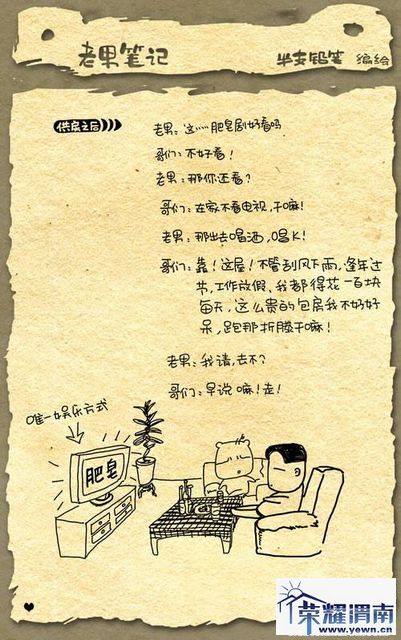 老果笔记
半支铅笔 编绘
供房之后
老果：这……肥皂剧好看吗
哥们：不好看！
老果：那你还看？
哥们：在家不看电视，干嘛！
老果：那出去喝酒，唱K！
哥们：靠！这屋！不管刮风下雨，逢年过
节，工作放假，我都得花一百块
每天，这么贵的包房我不好好
呆，跑那折腾干嘛！
老果：我请，去不？
哥们：早说嘛！走！
唯一娱乐方式
肥皂
荣耀渭南
www.yewn.cn